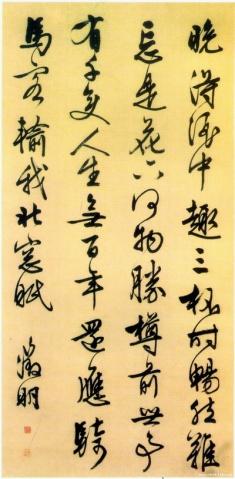 晚得酒中趣三杯時暢然難
忘是花下何物勝樽前世事
有千變人生無百年還應騎
馬客輸我北窓眠
徵明